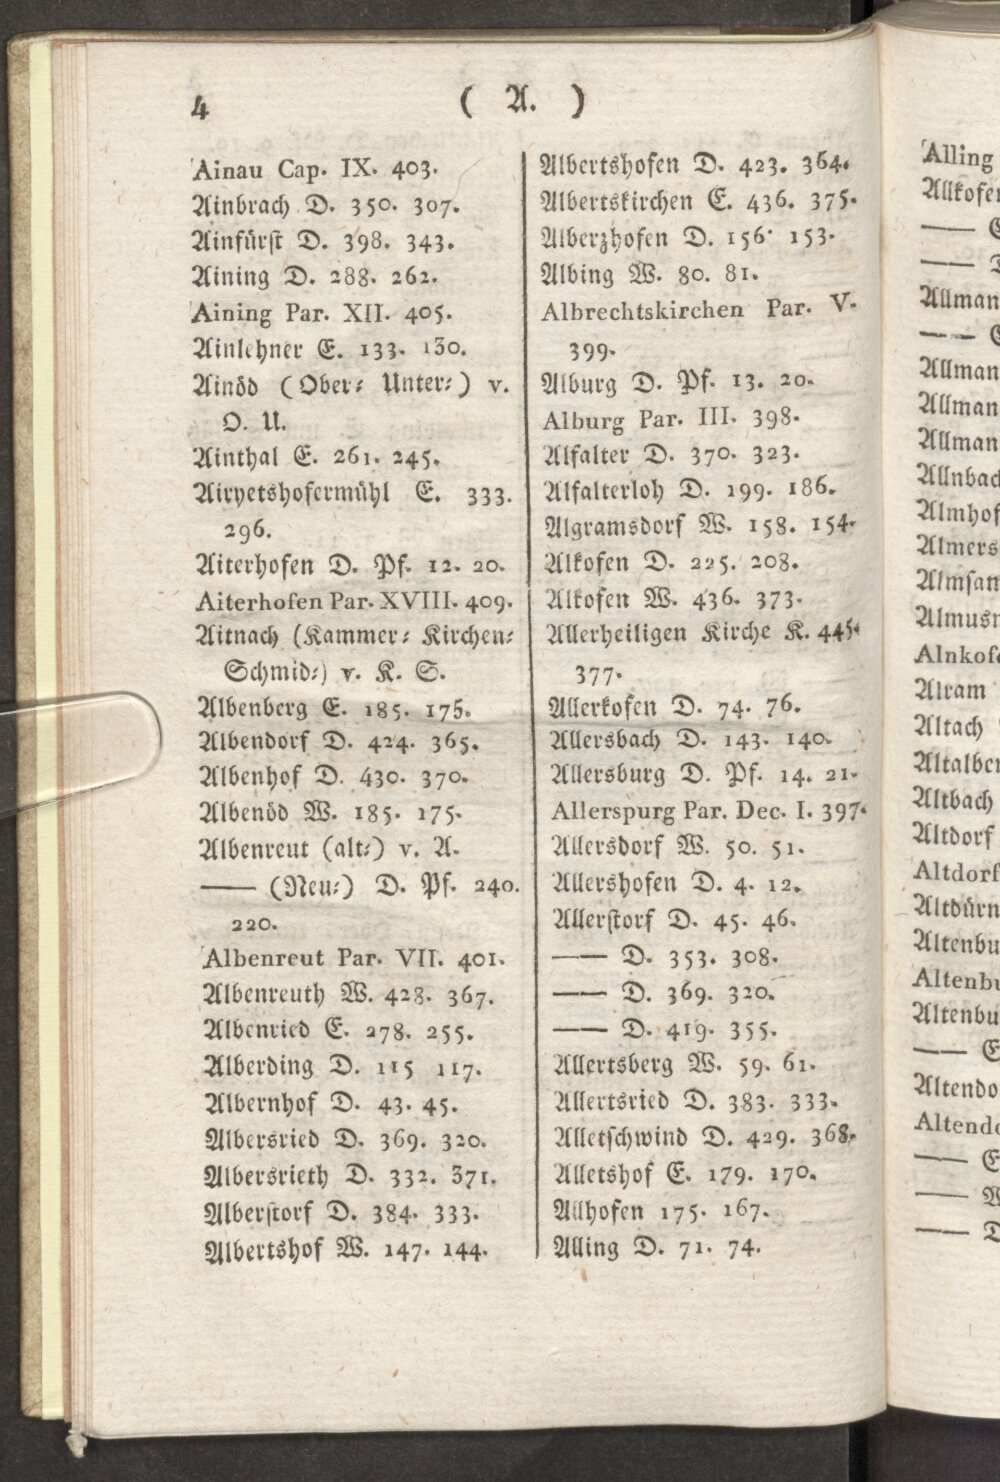 4
( A. )
Ainau Cap. IX. 403.
Ainbrach D. 350. 307.
Ainfürst D. 398. 343.
Aining D. 288. 262.
Aining Par. XII. 405.
Ainlehner E. 133. 130.
Ainöd (Ober⸗ Unter⸗) v.
O. U.
Ainthal E. 261. 245.
Airyetshofermühl E. 333.
296.
Aiterhofen D. Pf. 12. 20.
Aiterhofen Par. XVIII. 409.
Aitnach (Kammer⸗ Kirchen⸗
Schmid⸗) v. K. S.
Albenberg E. 185. 175.
Albendorf D. 424. 365.
Albenhof D. 430. 370.
Albenöd W. 185. 175.
Albenreut (alt⸗) v. A.
—— (Neu⸗) D. Pf. 240.
220.
Albenreut Par. VII. 401.
Albenreuth W. 428. 367.
Albenried E. 278. 255.
Alberding D. 115 117.
Albernhof D. 43. 45.
Albersried D. 369. 320.
Albersrieth D. 332. 371.
Alberstorf D. 384. 333.
Albertshof W. 147. 144.
Albertshofen D. 423. 364.
Albertskirchen E. 436. 375.
Alberzhofen D. 156. 153.
Albing W. 80. 81.
Albrechtskirchen Par. V.
399.
Alburg D. Pf. 13. 20.
Alburg Par. III. 398.
Alfalter D. 370. 323.
Alfalterloh D. 199. 186.
Algramsdorf W. 158. 154.
Alkofen D. 225. 208.
Alkofen W. 436. 373.
Allerheiligen Kirche K. 445.
377.
Allerkofen D. 74. 76.
Allersbach D. 143. 140.
Allersburg D. Pf. 14. 21.
Allerspurg Par. Dec. I. 397.
Allersdorf W. 50. 51.
Allershofen D. 4. 12.
Allerstorf D. 45. 46.
—— D. 353. 308.
—— D. 369. 320.
—— D. 419. 355.
Allertsberg W. 59. 61.
Allertsried D. 383. 333.
Alletschwind D. 429. 368.
Alletshof E. 179. 170.
Allhofen 175. 167.
Alling D. 71. 74.
Alling